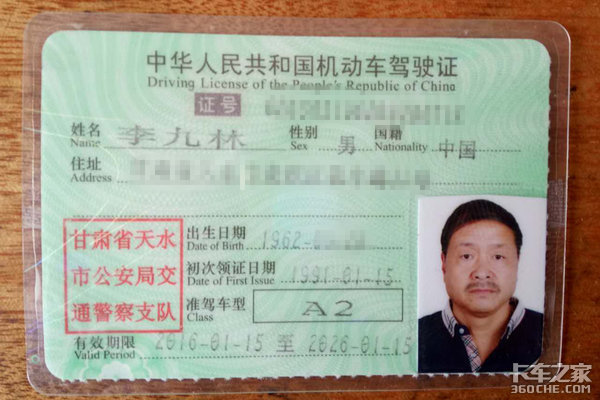 中华人民共和国机动车驾驶证
Driving License of the People's Republic of China
证号
姓名 李九林 性别 男 国籍 中国
Name Sex Nationality
住址
Address
甘肃省天水
市公安局交
通警察支队
出生日期 1962-
Date of Birth
初次领证日期 1991-01-15
Date of First Issue
准驾车型 A2
Class
有效期限 2016-01-15 至 2026-01-15
Valid Period
卡车之家
360che.com